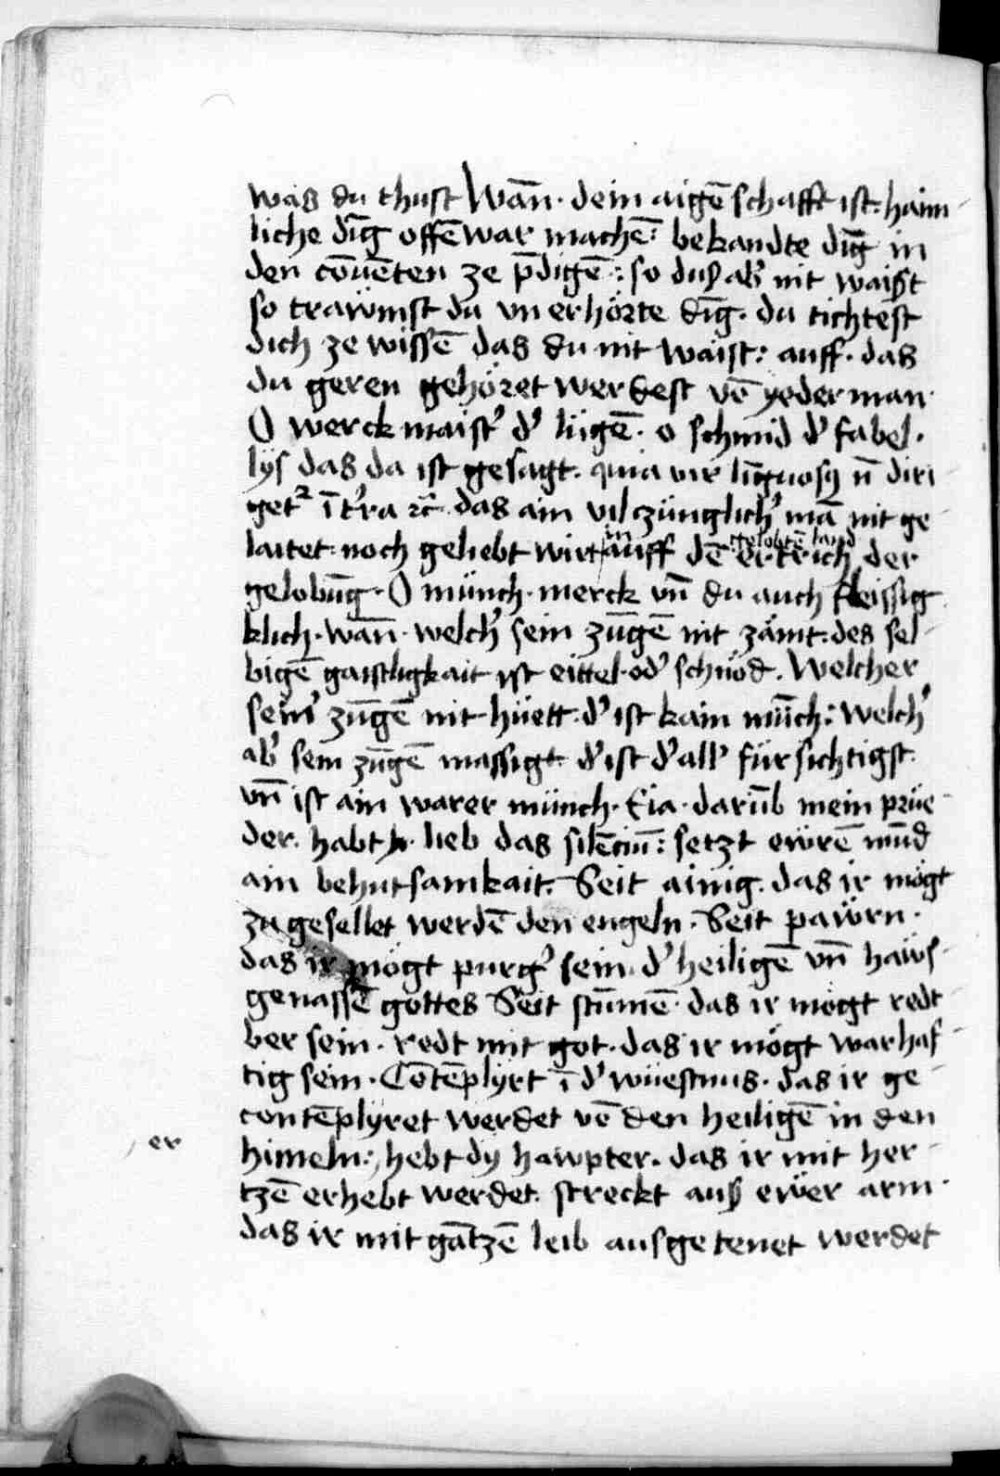 was du thust Wañ· dein aigē schafft ist: haim-
liche dīg offēwar machē: bekandte dīg in
den cōuēten ze p̄digē: so duß ab̓ nit waißt
so trawmst du vn erhörte dīg· du tichtest
dich ze wissē das du nit waist: auff· das
du geren gehöret werdest vō yederman·
O werck maist̓ d̓ lügē· o schmid d̓ fabel·
lys das da ist gesagt· quia vir līguosꝫ n̄ diri
get᷑ ī t̓ra ⁊c̄· das ain vil zünglich̓ mā nit ge-
laitet: noch geliebt wirt in gelobtē land auff dē ertrich der
gelobūg· O münch· merck vn̄ du auch fleissig
klich· wañ· welch̓ sein zūgē nit zämt: des sel-
bigē gaistligkait ist eittel· od̓ schnöd. Welcher
sein̓ zūgē nit hüett· d̓ ist kain mūch: welch̓
ab̓ sein zūgē massigt· d̓ ist d̓ all̓ fürsichtigst·
vn̄ ist ain warer münch· Eia· darūb mein prüe-
der· habt lieb das silēciū: setzt ewrē mūd
ain behutsamkait. Seit ainig· das ir mögt
zu gesellet werdē den engeln· Seit pawrn·
das ir mögt purg̓ sein d̓ heiligē vn̄ haws-
genassē gottes Seit stūmē· das ir mögt redt-
ber sein· redt mit got· das ir mögt warhaf-
tig sein· Cōtēplyrt ī d̓ wüestnus· das ir ge-
contēplyret werdet vō den heiligē in den
er
himeln: hebt dy hawpter· das ir mit her-
tzē erhebt werdet· streckt auß ewer arm·
das ir mit gātzē leib ausgetenet werdet